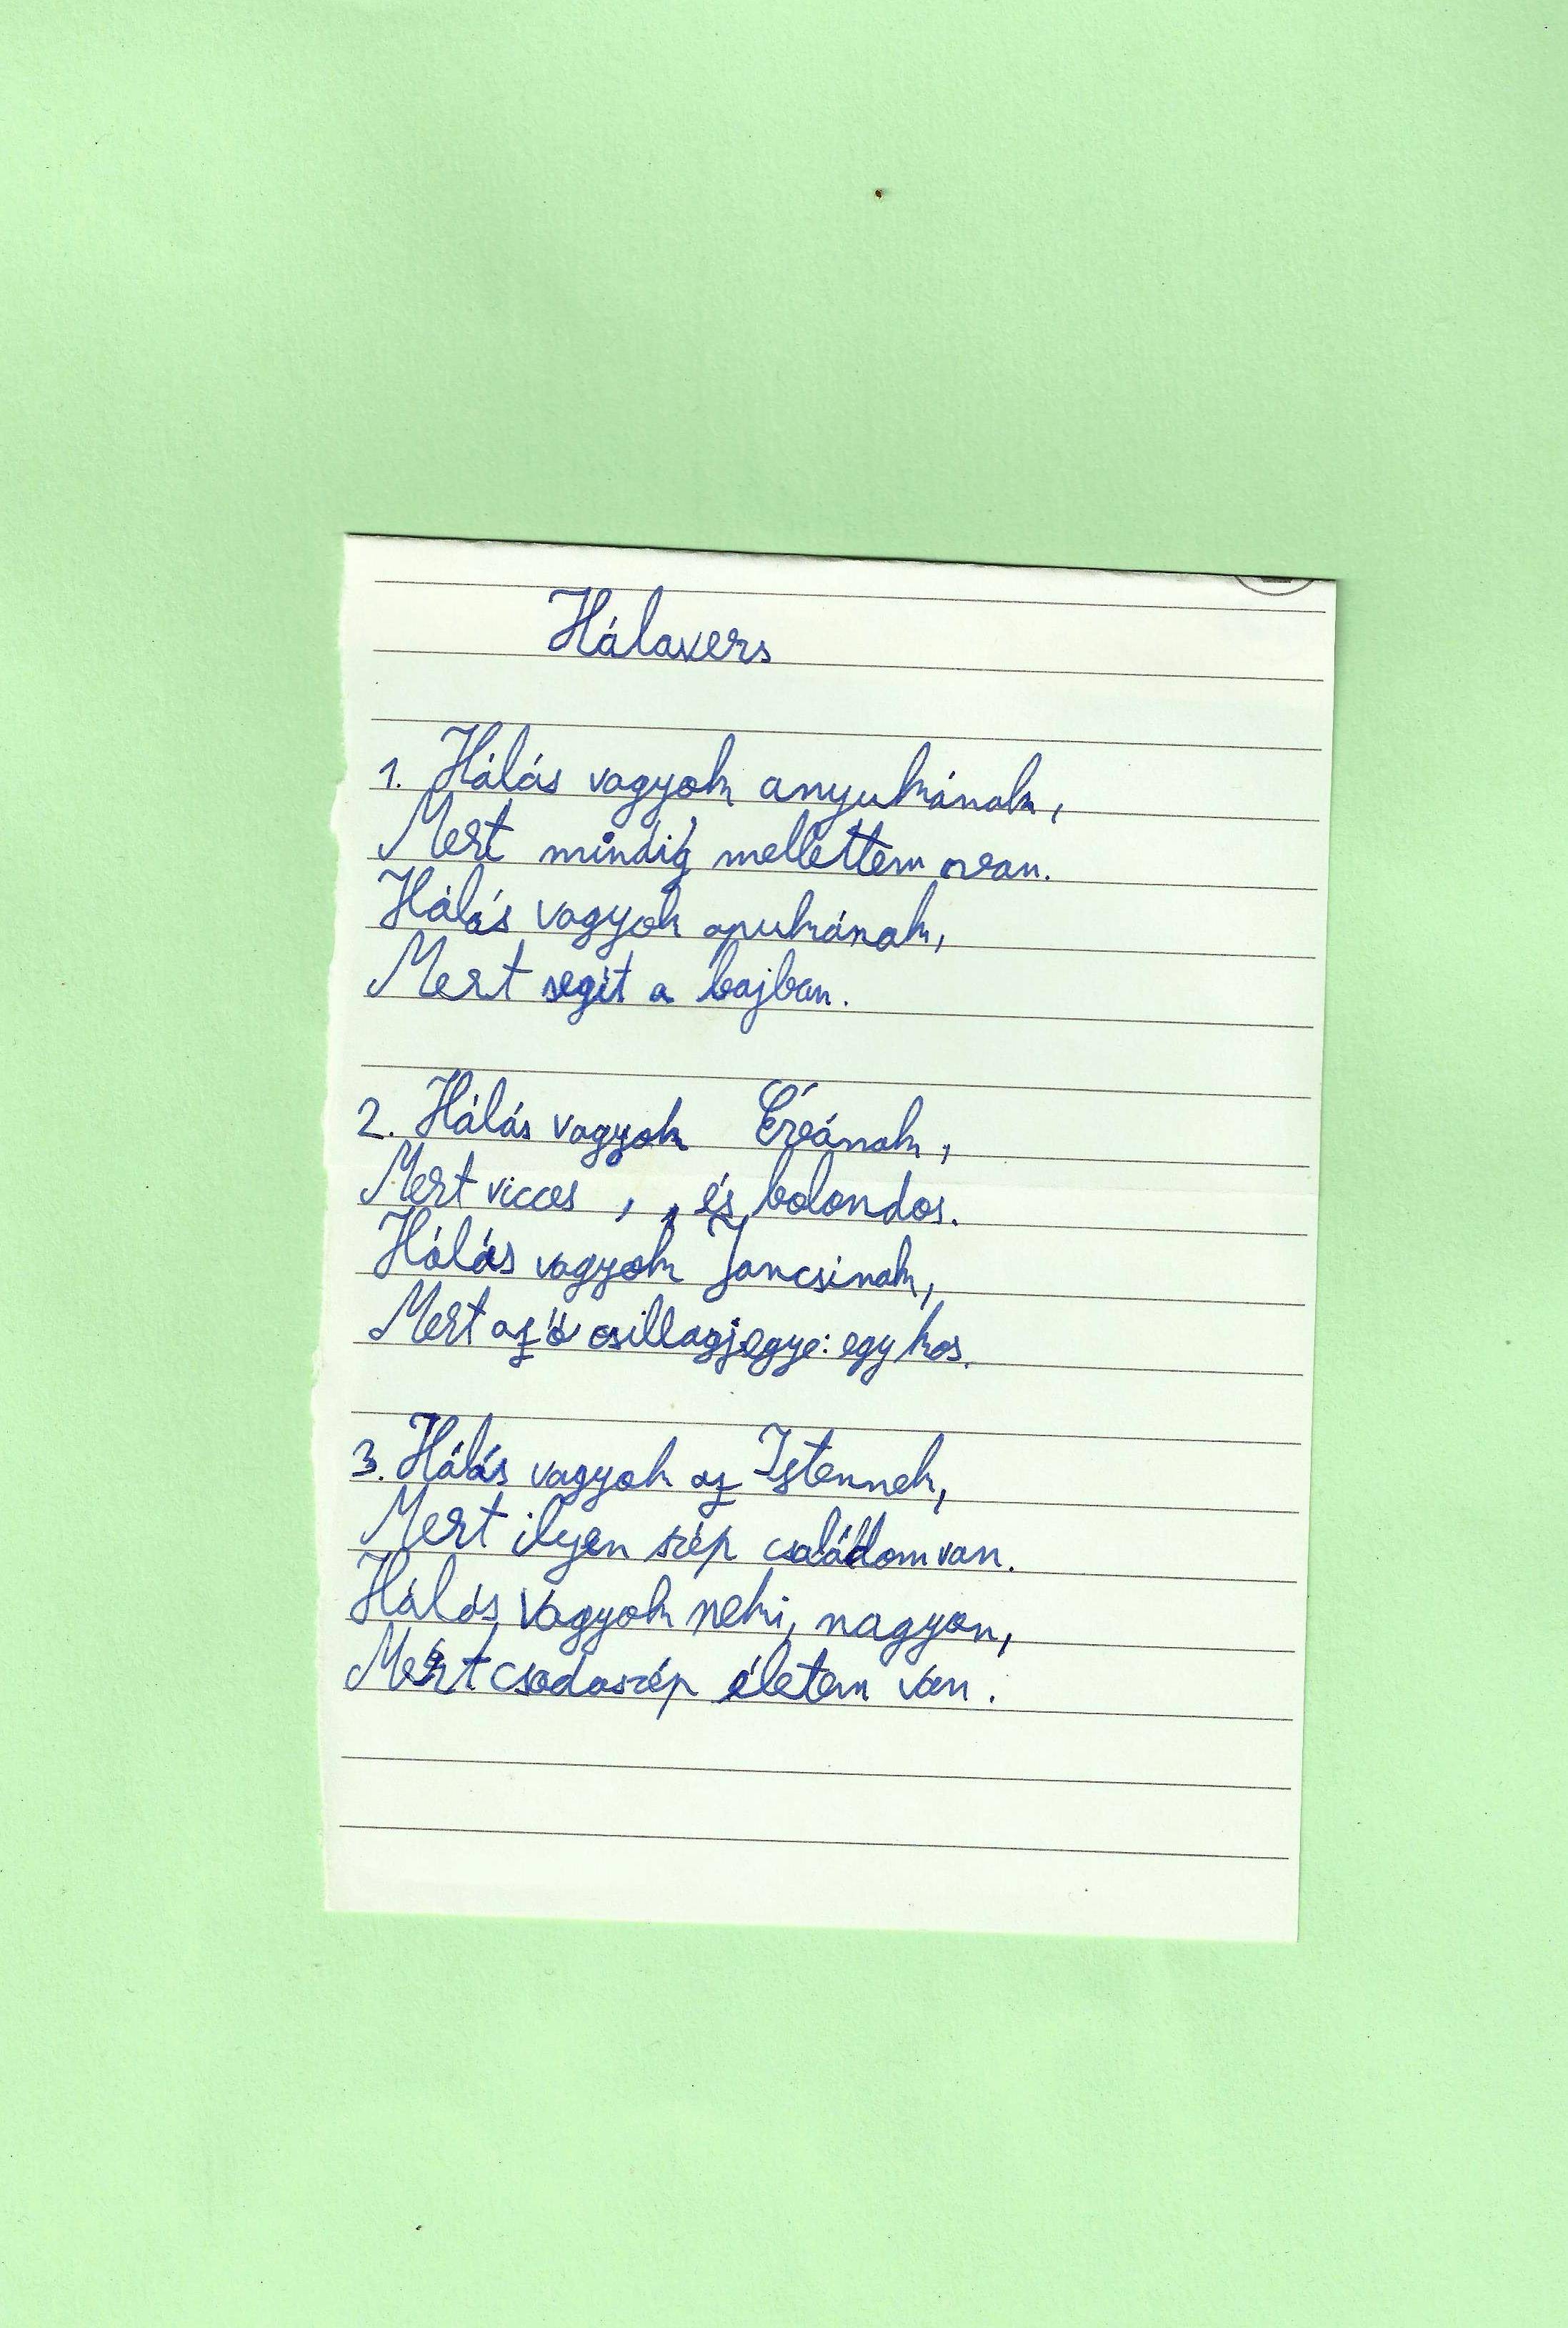 Hálavers
1. Hálás vagyok anyukának,
Mert mindig mellettem van.
Hálás vagyok apukának,
Mert segit a bajban.
2. Hálás vagyok Évának,
Mert vicces , , és bolondos.
Hálás vagyok Jancsinak,
Mert az ő csillagjegye: egy kos.
3. Hálás vagyok az Istennek,
Mert ilyen szép családom van.
Hálás vagyok neki, nagyon,
Mert csodaszép életem van.